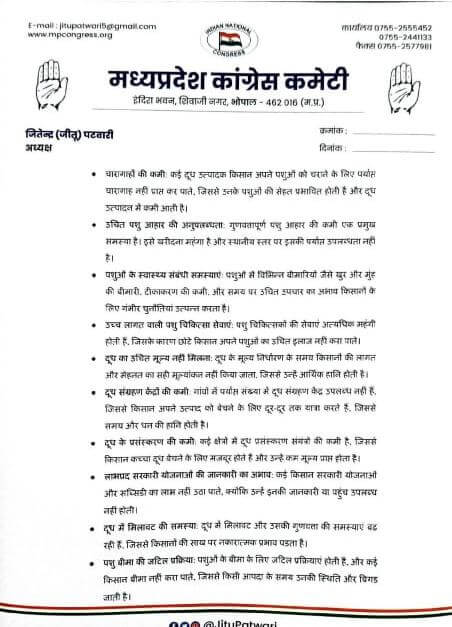 E-mail : jitupatwari5@gmail.com
www.mpcongress.org
INDIAN NATIONAL
CONGRESS
कार्यालय 0755-2555452
0755-2441133
फैक्स 0755-2577981
मध्यप्रदेश कांग्रेस कमेटी
इंदिरा भवन, शिवाजी नगर, भोपाल - 462 016 (म.प्र.)
जितेन्द्र (जीतू) पटवारी
अध्यक्ष
क्रमांक :
दिनांक :
• चारागाहों की कमी: कई दूध उत्पादक किसान अपने पशुओं को चराने के लिए पर्याप्त
चारागाह नहीं प्राप्त कर पाते, जिससे उनके पशुओं की सेहत प्रभावित होती है और दूध
उत्पादन में कमी आती है।
• उचित पशु आहार की अनुपलब्धता: गुणवत्तापूर्ण पशु आहार की कमी एक प्रमुख
समस्या है। इसे खरीदना महंगा है और स्थानीय स्तर पर इसकी पर्याप्त उपलब्धता नहीं
है।
• पशुओं के स्वास्थ्य संबंधी समस्याएं: पशुओं में विभिन्न बीमारियों जैसे खुर और मुंह
की बीमारी, टीकाकरण की कमी, और समय पर उचित उपचार का अभाव किसानों के
लिए गंभीर चुनौतियां उत्पन्न करता है।
• उच्च लागत वाली पशु चिकित्सा सेवाएं: पशु चिकित्सकों की सेवाएं अत्यधिक महंगी
होती हैं, जिसके कारण छोटे किसान अपने पशुओं का उचित इलाज नहीं करा पाते।
• दूध का उचित मूल्य नहीं मिलना: दूध के मूल्य निर्धारण के समय किसानों की लागत
और मेहनत का सही मूल्यांकन नहीं किया जाता, जिससे उन्हें आर्थिक हानि होती है।
• दूध संग्रहण केंद्रों की कमी: गांवों में पर्याप्त संख्या में दूध संग्रहण केंद्र उपलब्ध नहीं हैं,
जिससे किसान अपने उत्पाद को बेचने के लिए दूर-दूर तक यात्रा करते हैं, जिससे
समय और धन की हानि होती है।
• दूध के प्रसंस्करण की कमी: कई क्षेत्रों में दूध प्रसंस्करण संयंत्रों की कमी है, जिससे
किसान कच्चा दूध बेचने के लिए मजबूर होते हैं और उन्हें कम मूल्य प्राप्त होता है।
• लाभप्रद सरकारी योजनाओं की जानकारी का अभाव: कई किसान सरकारी योजनाओं
और सब्सिडी का लाभ नहीं उठा पाते, क्योंकि उन्हें इनकी जानकारी या पहुंच उपलब्ध
नहीं होती।
• दूध में मिलावट की समस्या: दूध में मिलावट और उसकी गुणवत्ता की समस्याएं बढ़
रही हैं, जिससे किसानों की साख पर नकारात्मक प्रभाव पड़ता है।
• पशु बीमा की जटिल प्रक्रिया: पशुओं के बीमा के लिए जटिल प्रक्रियाएं होती हैं, और कई
किसान बीमा नहीं करा पाते, जिससे किसी आपदा के समय उनकी स्थिति और बिगड़
जाती है।
@JituPatwari